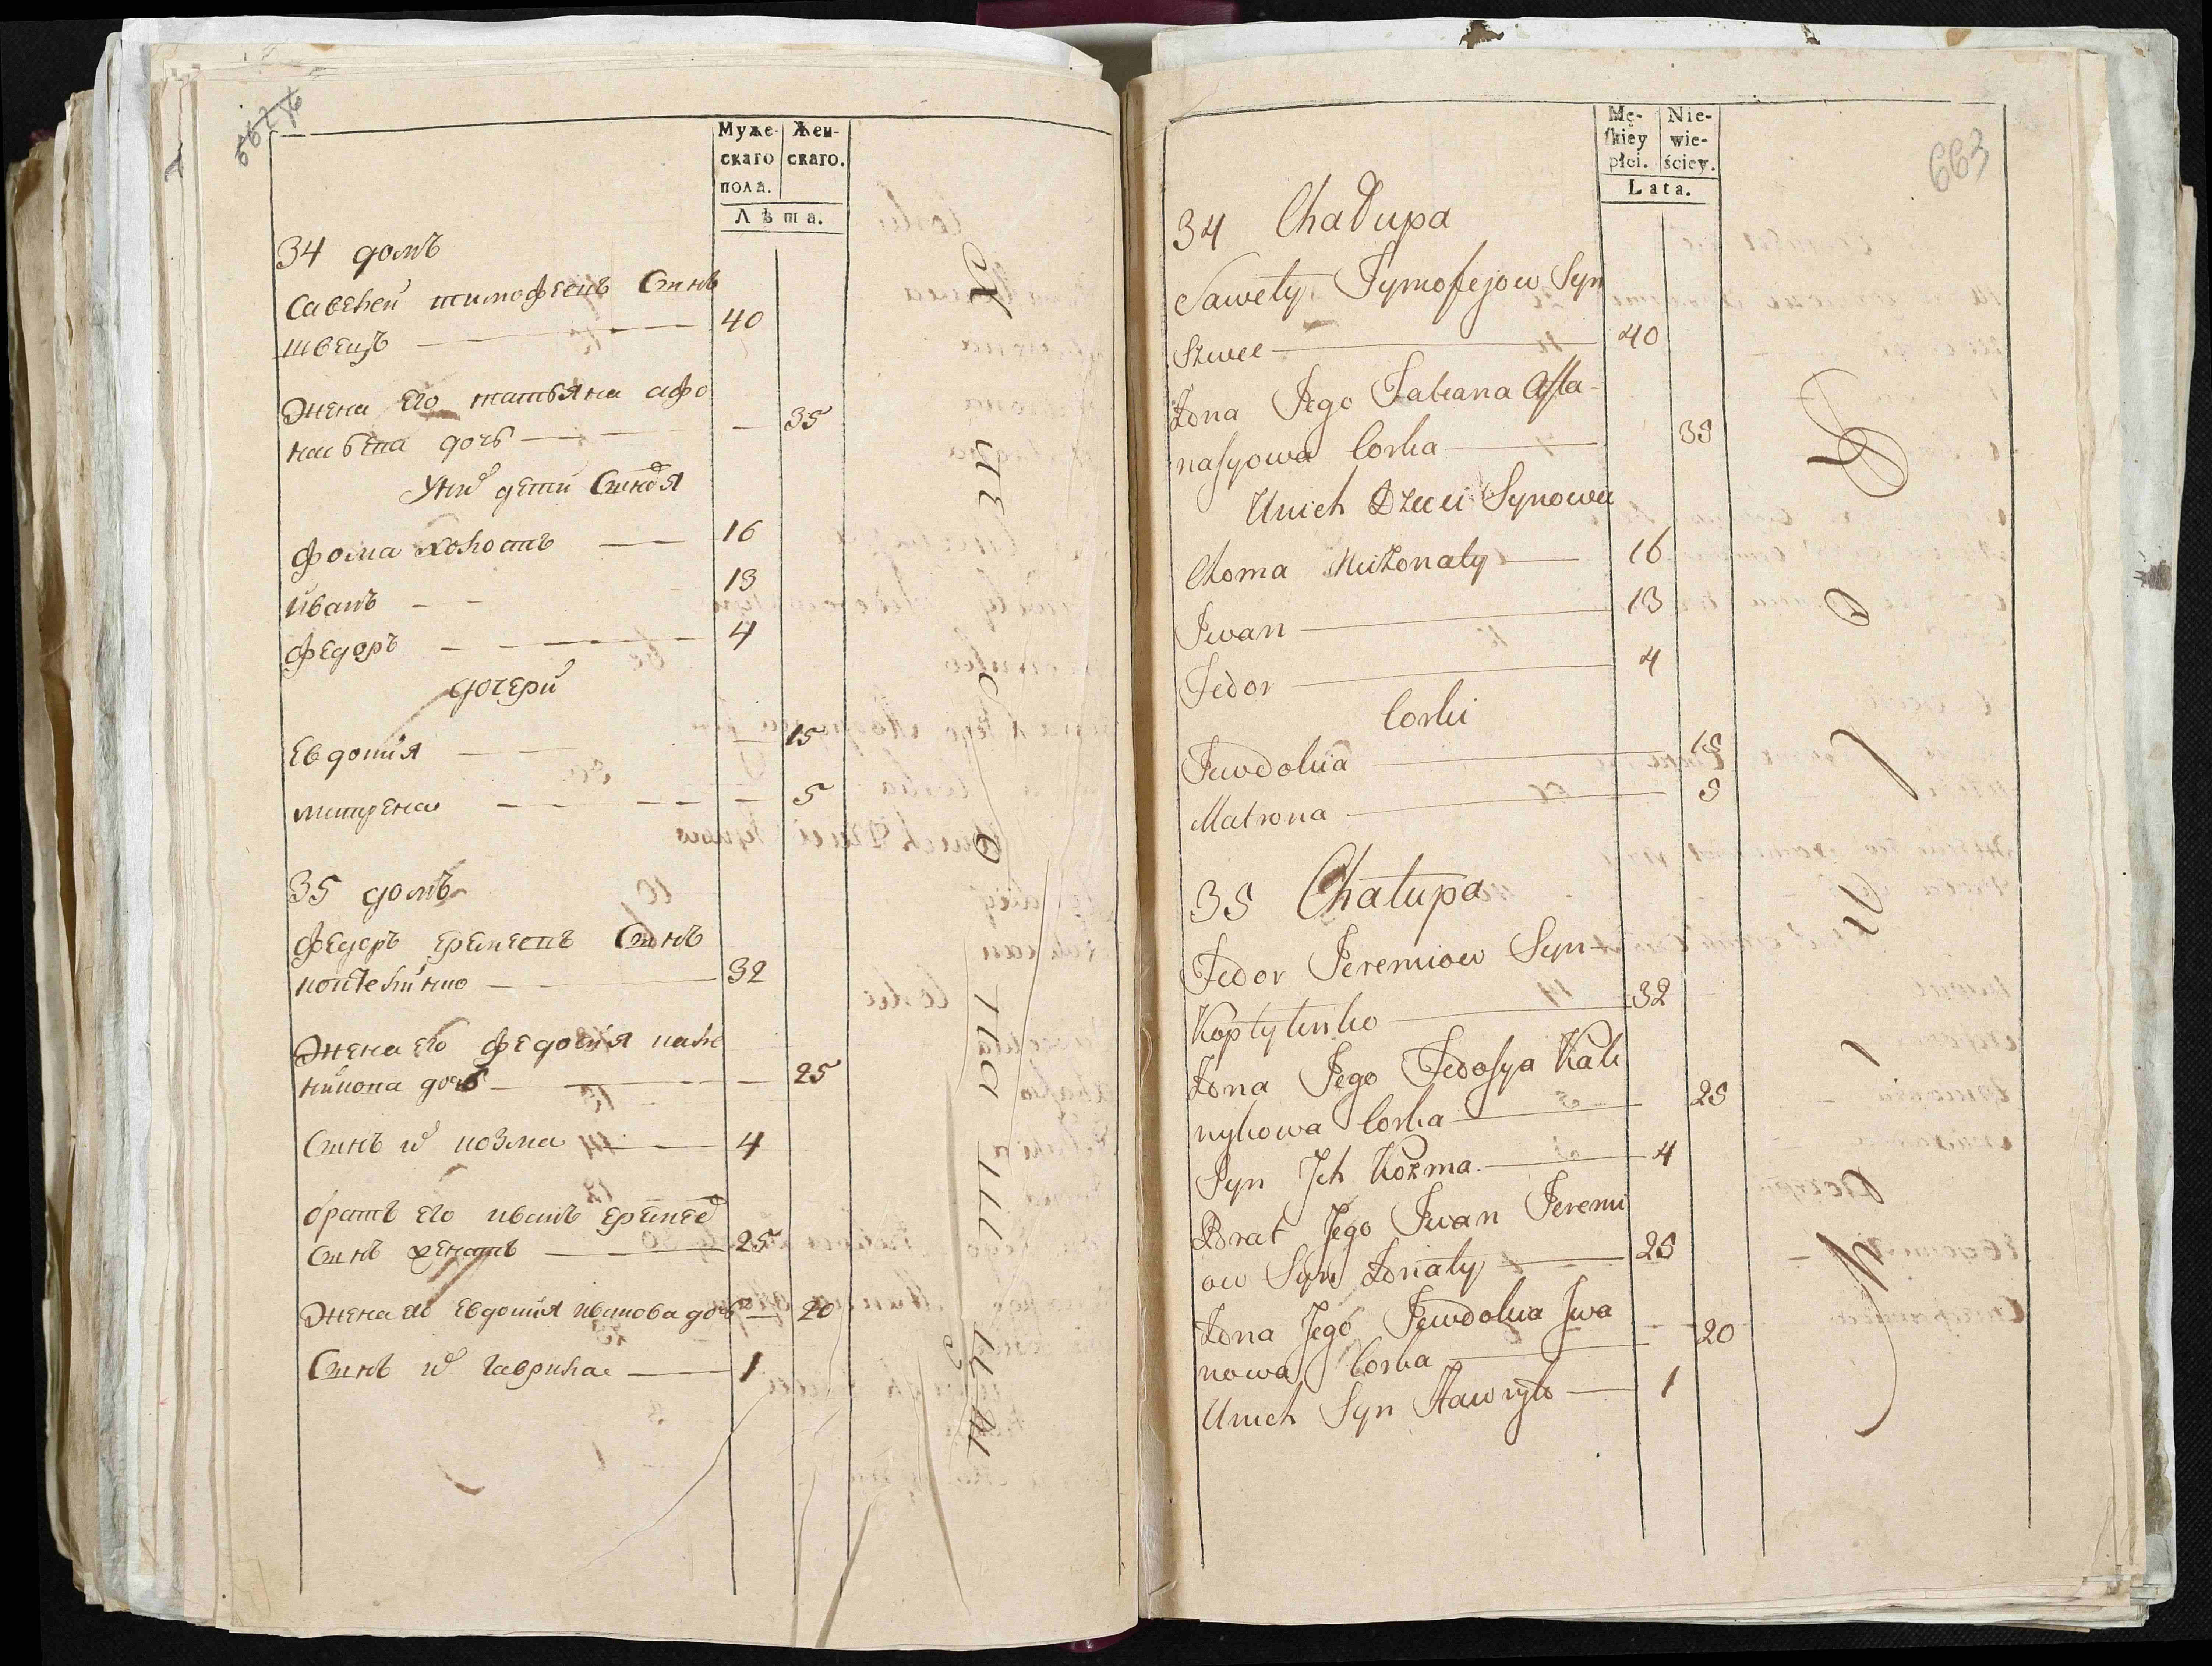 Муже- Жен-
скаго скаго.
пола.
Лѣта.
34 домъ
Савелей тимофеевъ Сынъ
швецъ 40
Жена его татьяна афо
насьева дочь 35
У них дети Сыновя
фома холостъ 16
иванъ 13
федоръ 4
дочери
Евдотия 15
матрена 5
35 домъ
федоръ еремеевъ Сынъ
32
Жена его федосия кале
никова дочь 25
Сынъ их козма 4
братъ его иванъ еремеев
Сынъ женатъ 25
Жена его Евдотия иванова дочь 20
Сынъ их гаврила 1
663
Mę- Nie-
skiey wie-
płci. ściey.
Lata.
34 Chałupa
Sawely Tymofejow Syn
Szwec 40
Żona Jego Tatiana Affa-
nasyowa Corka 35
Unich Dzieci Synowie
Choma Nieżonaty 16
Jwan 13
Fedor 4
Corki
Jewdokia 15
Matrona 5
35 Chałupa
Fedor Jeremiow Syn
Koptytenko 32
Żona Jego Fedosya Kali
nykowa Corka 25
Syn Jch Kozma 4
Brat Jego Jwan Jeremi
ow Syn Żonaty 25
Żona Jego Jewdokia Jwa
nowa Corka 20
Unich Syn Hawryło 1